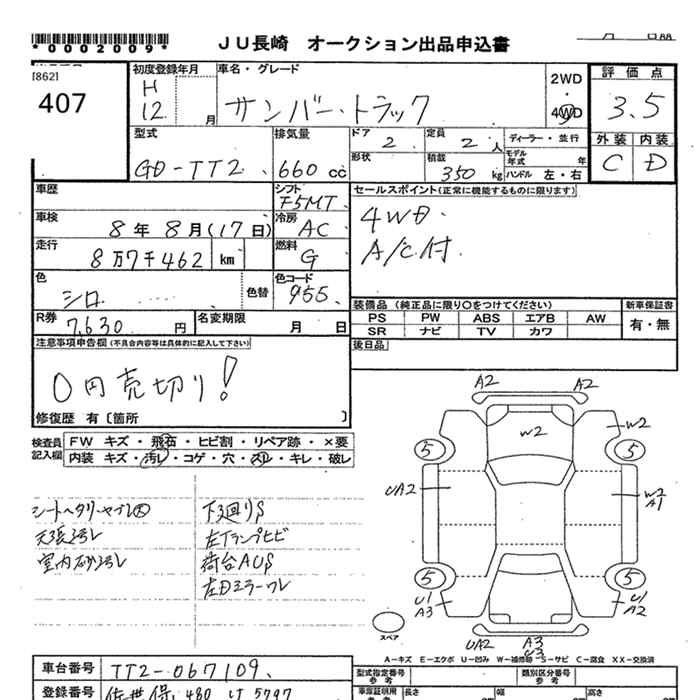 *0002009*
JU長崎 オークション出品申込書
月 日
[862]
407
初度登録年月
H
12 月
車名・グレード
サンバートラック
2WD
・
4WD
評価点
3.5
外装 内装
C D
型式
GD-TT2
排気量
660 cc
ドア
2
定員
2 人
ディーラー・並行
形状
積載
350 kg
モデル年式 年
ハンドル 左・右
車歴
シフト
F5MT
セールスポイント(正常に機能するものに限ります)
4WD
A/C付
車検
8年 8月(17日)
冷房
AC
走行
8万7千462 km
燃料
G
色
シロ
色替
色コード
955
R券
7,630 円
名変期限
月 日
装備品 (純正品に限り○をつけてください)
PS PW ABS エアB AW
SR ナビ TV カワ
新車保証書
有・無
注意事項申告欄(不具合内容等は具体的に記入して下さい)
0円売切り!
修復歴 有〔箇所 〕
後日品
検査員記入欄
FW キズ・飛石・ヒビ割・リペア跡・×要
内装 キズ・汚レ・コゲ・穴・スレ・キレ・破レ
シートヘタリ・ヤブレ大
天張汚レ
室内砂汚レ
下廻りS
左Tランプヒビ
荷台AUS
左Dミラーワレ
A2 A2
W2
W2
5 5
UA2
W2
A1
5 5
U1
A3
U1
A2
スペア
UA2
A3
U3
A-キズ E-エクボ U-凹み W-補修跡 S-サビ C-腐食 XX-交換済
車台番号
TT2-067109
登録番号
佐世保 480 い 5797
型式指定番号
参考
類別区分番号
参考
車庫証明用
参考
長さ
幅
高さ